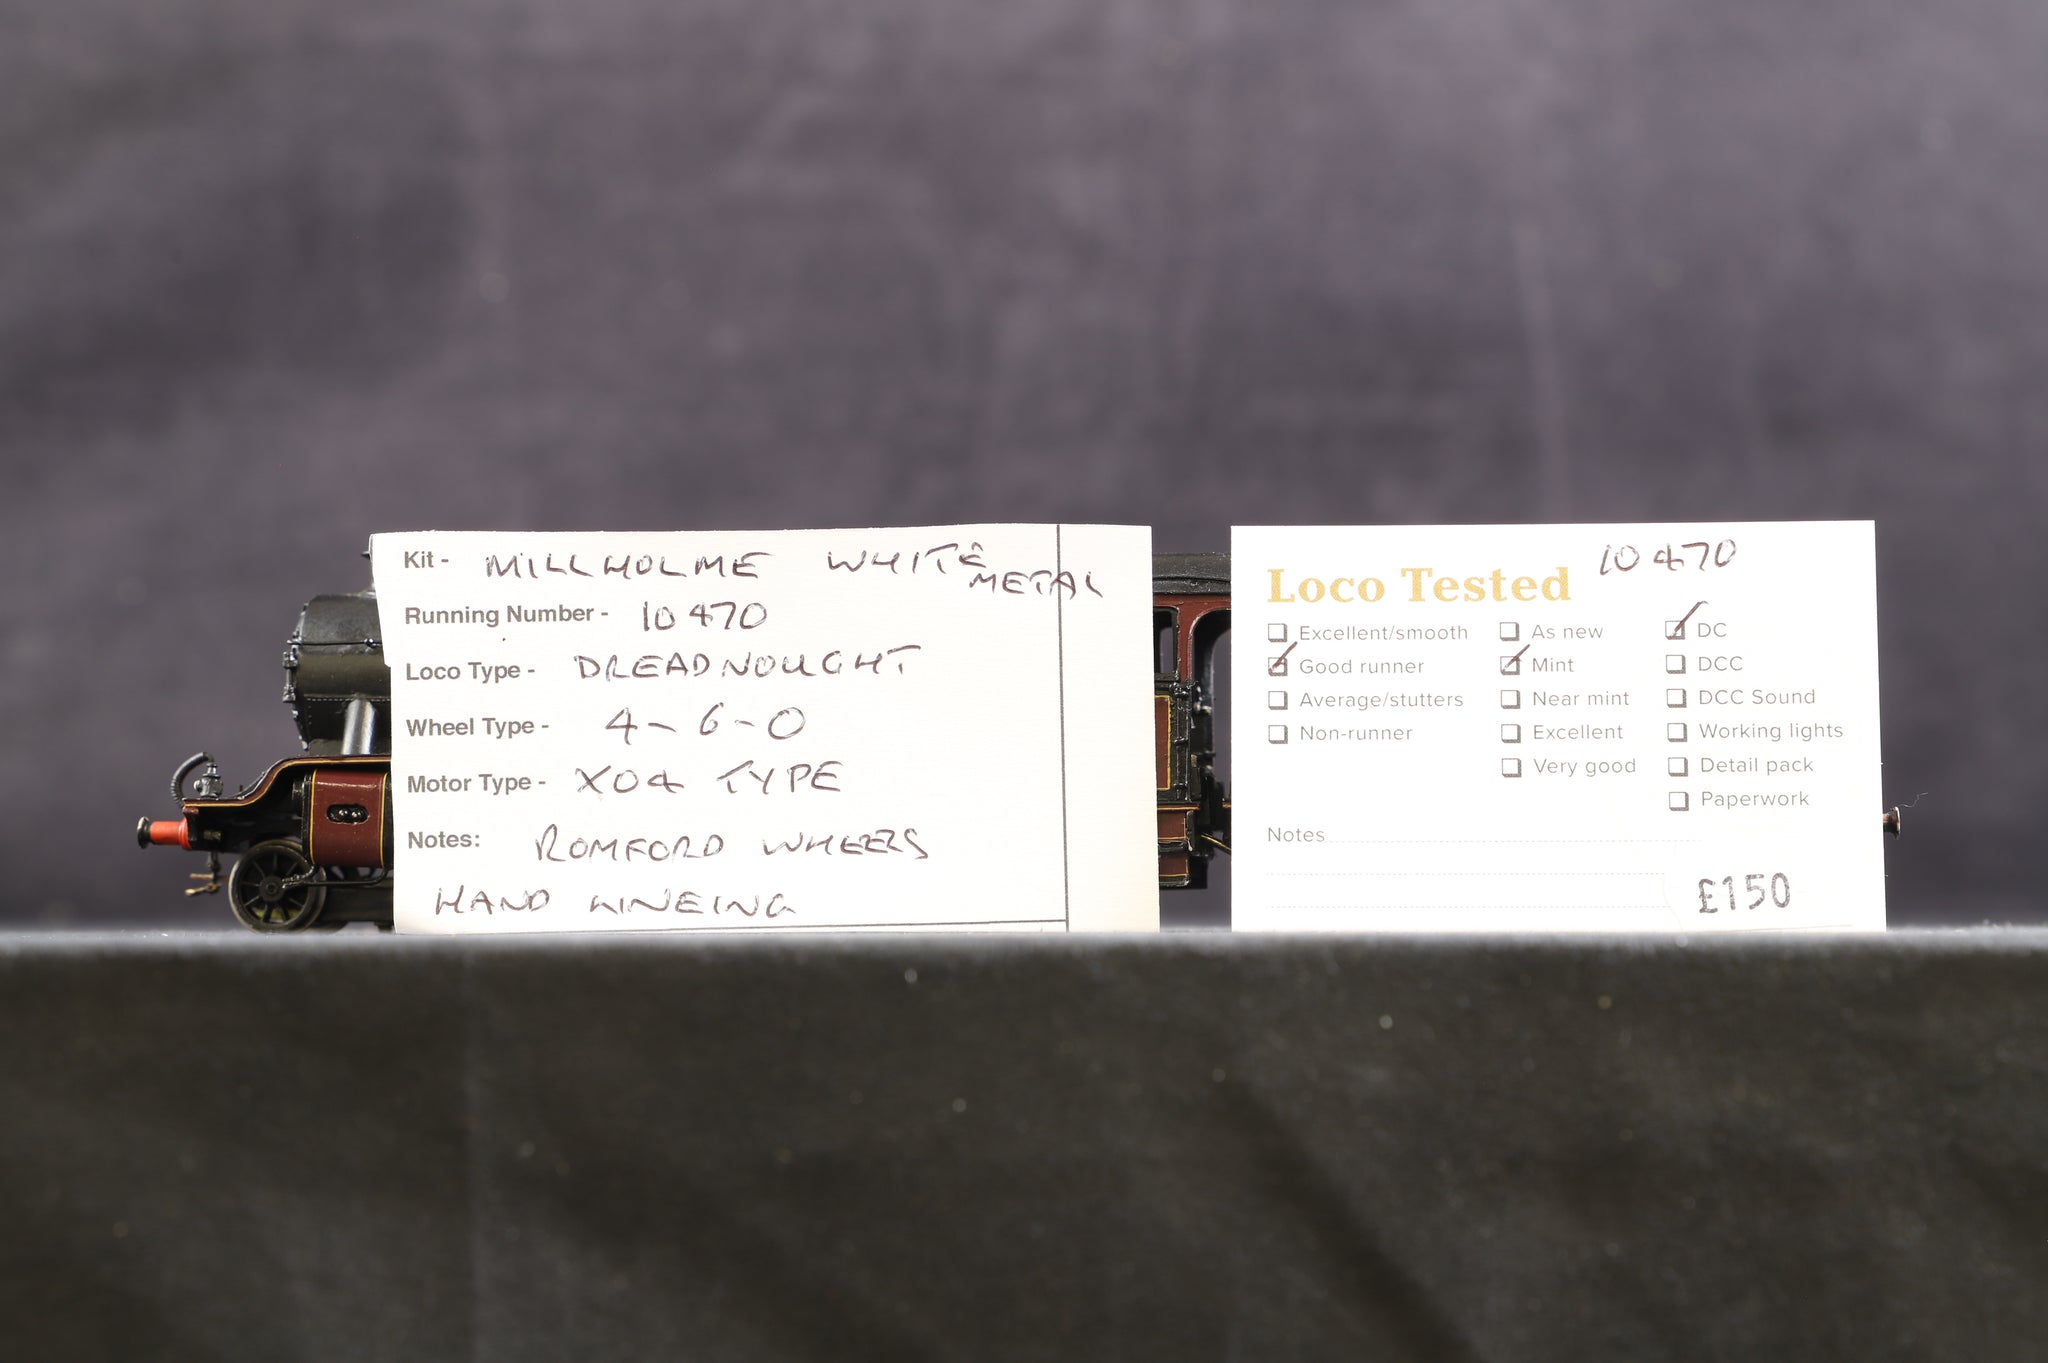 Kit - MILLHOLME WHITE
METAL
Running Number - 10470
Loco Type - DREADNOUGHT
Wheel Type - 4-6-0
Motor Type - X04 TYPE
Notes: ROMFORD WHEELS
HAND LINEING
10470
Loco Tested
Excellent/smooth
Good runner
Average/stutters
Non-runner
As new
Mint
Near mint
Excellent
Very good
DC
DCC
DCC Sound
Working lights
Detail pack
Paperwork
Notes
£150